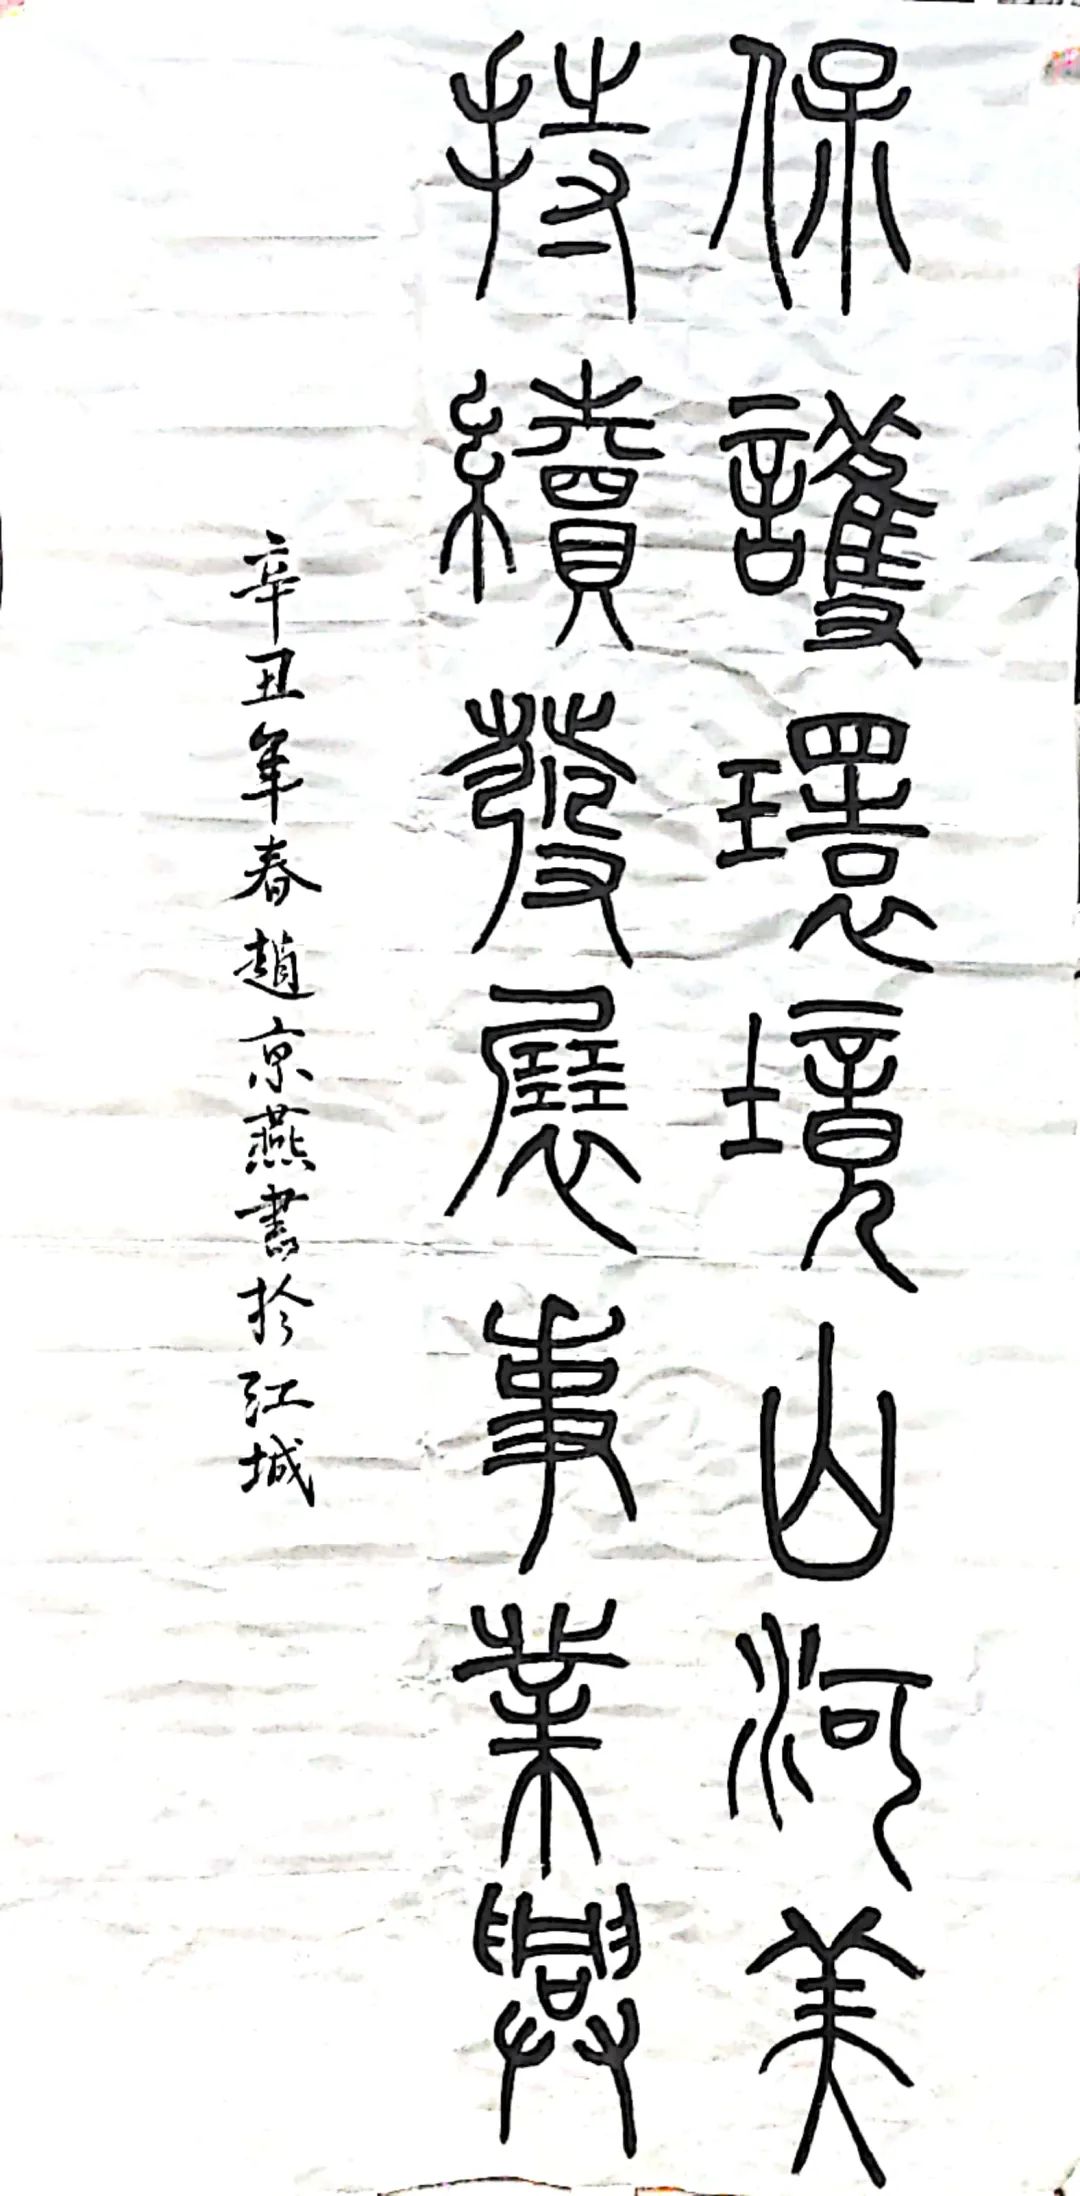 保護環境山河美
持續發展事業興
辛丑年春趙京燕書於江城